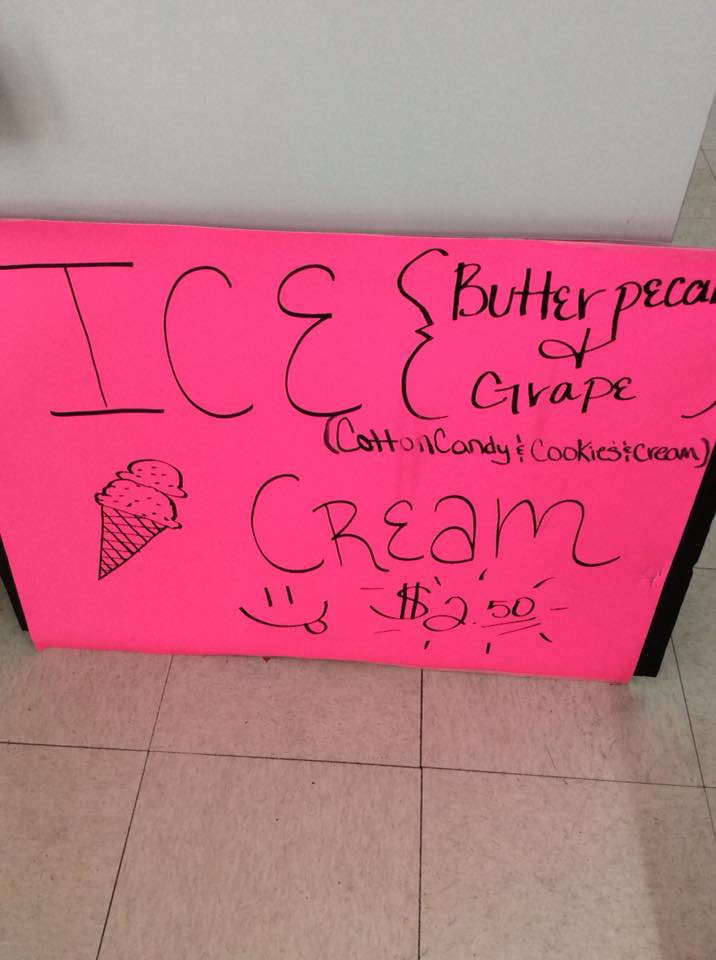 ICE { Butter pecan
&
Grape
(Cotton Candy & Cookies & Cream)
CREAM
$2.50